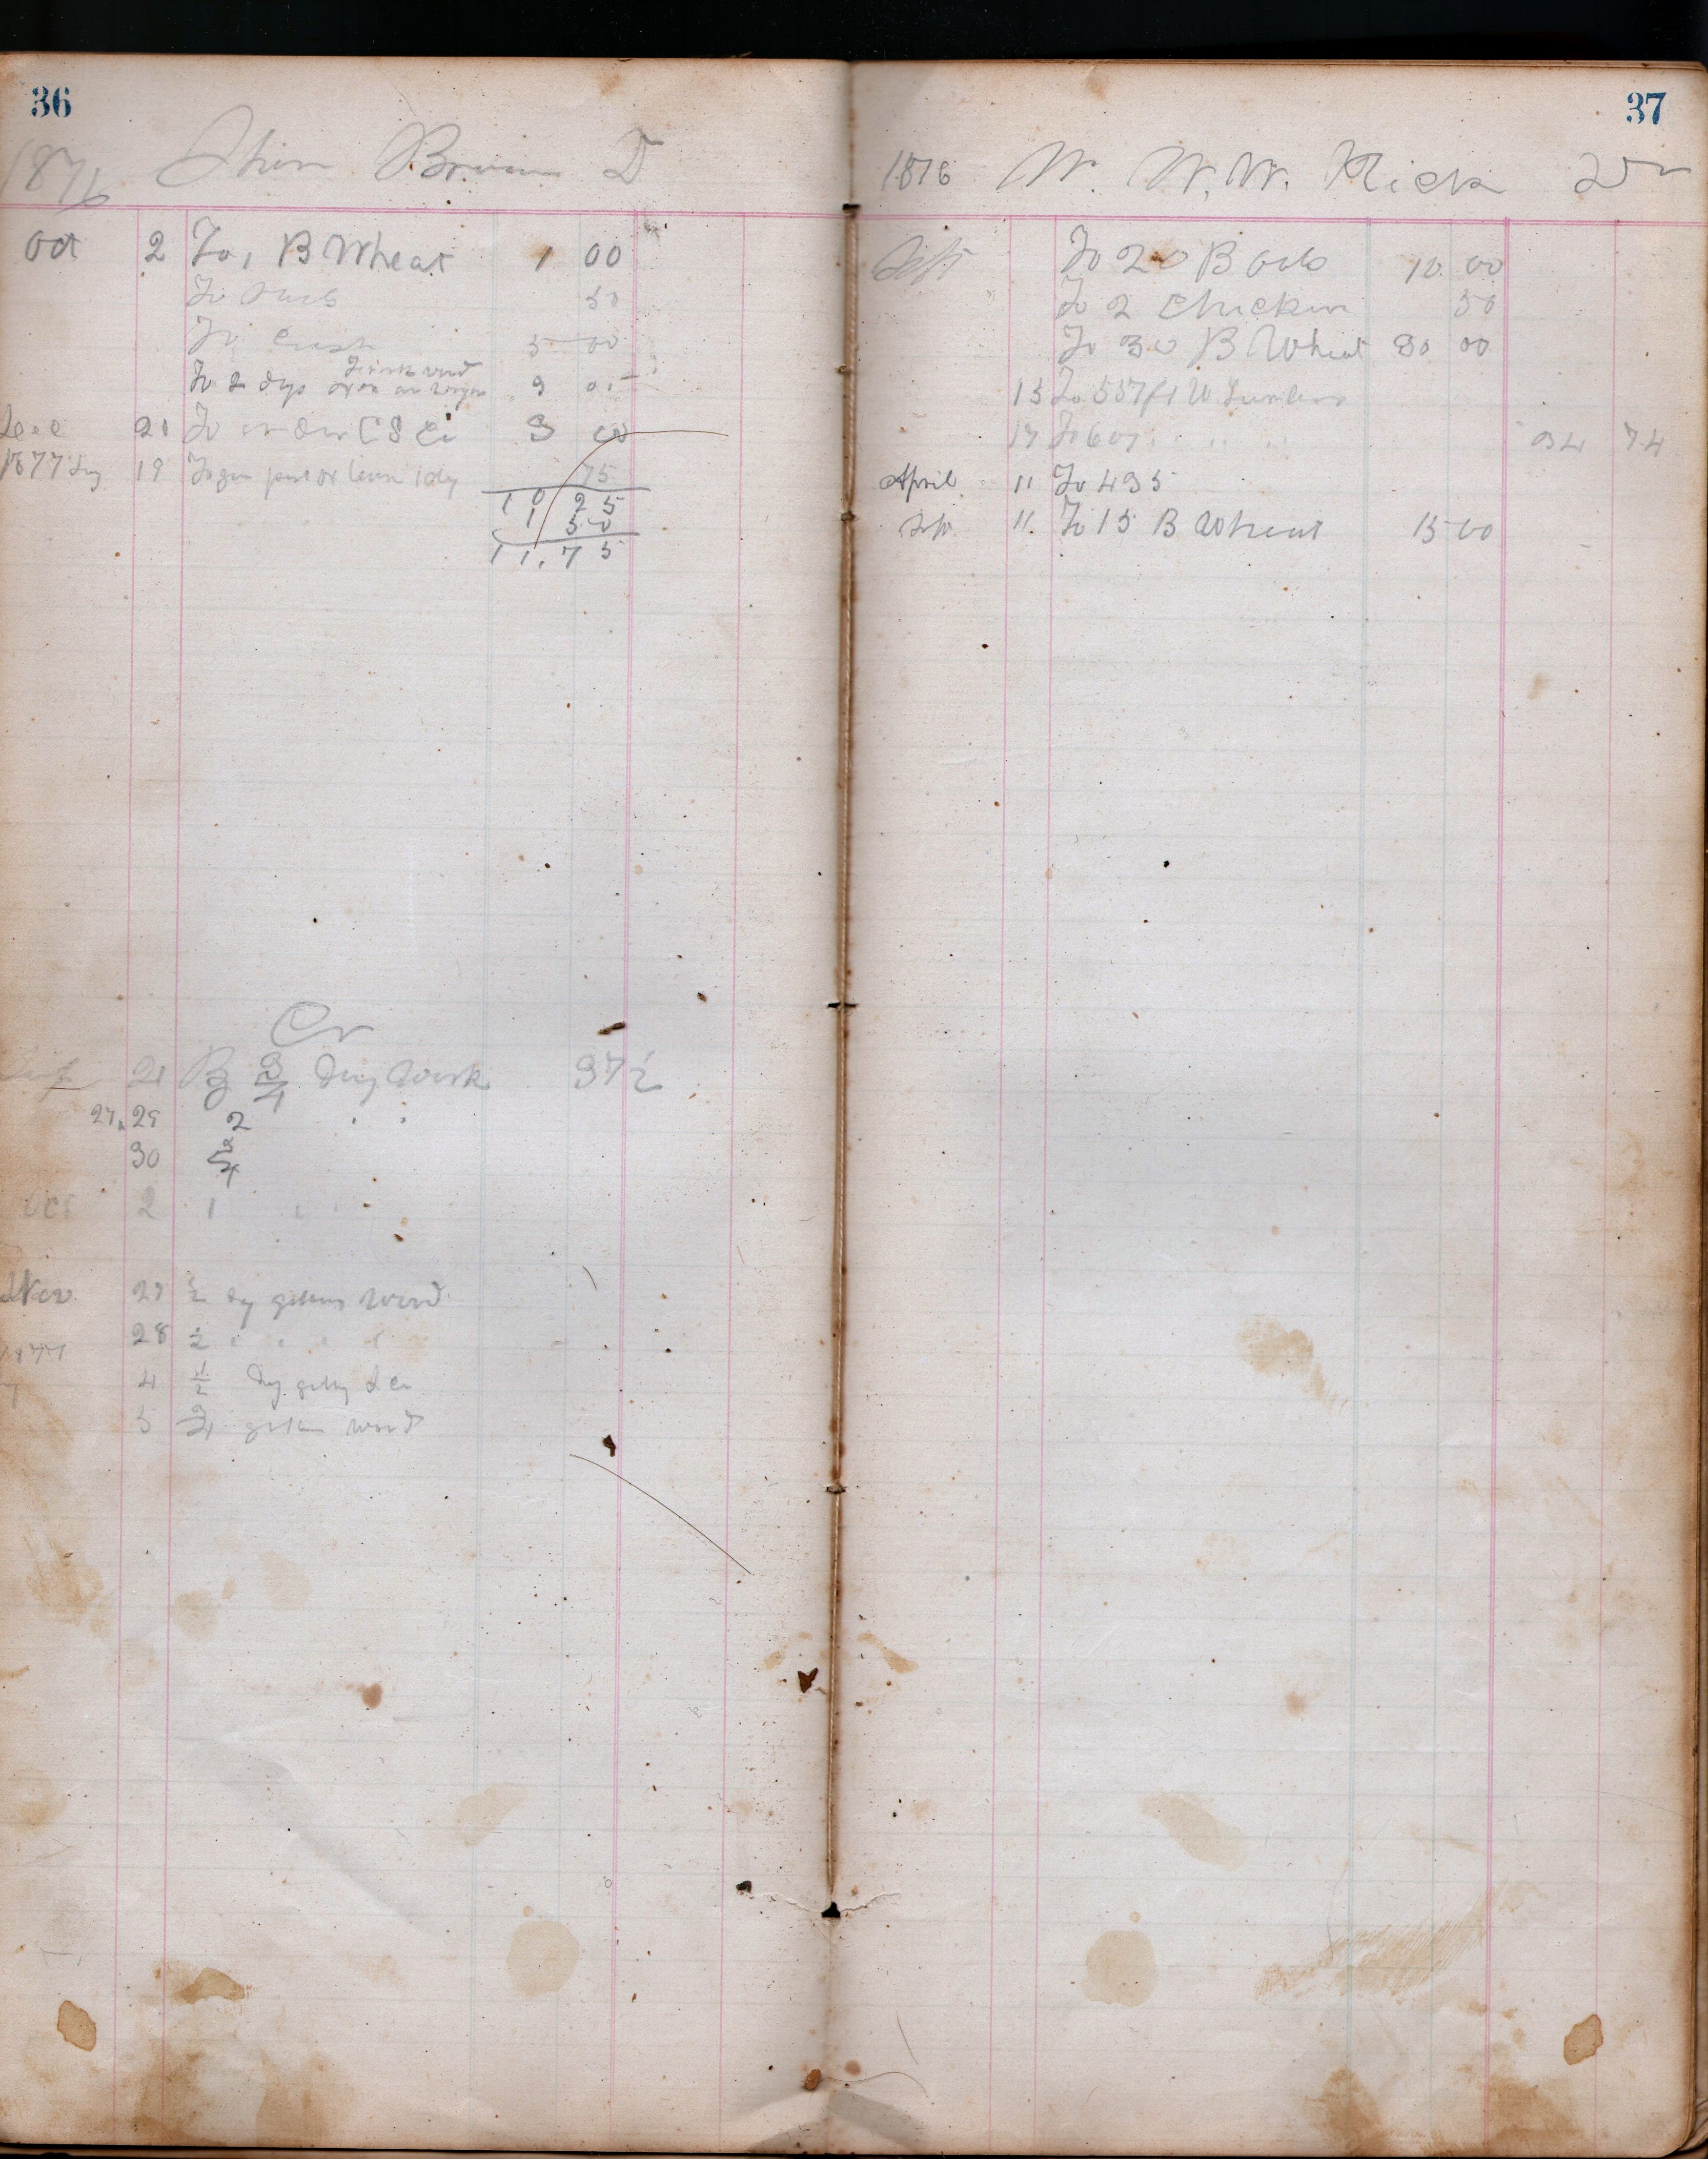 36
1876 Brown D
Oct 2 To 1 B Wheat 1 00
To 50
To Cash 5 00
To 2 dys oxen an wagon
Dec 21 To order C S Co 3 00
1877 19 75
10 25
1 50
11.75
Cr
21 By 3/4 Day Work 37 1/2
27 & 29 2 " "
30 3/4
Oct 2 1 " "
Nov 27 1/2 dy getting wood
28 1/2 " " " "
1877
4 1/2 Day
5 3/4 wood
37
1876 W. W. W. Rick Dr
Sept To 20 B Oats 10 00
" To 2 Chicken 50
To 30 B Wheat 30 00
13 To 557 ft W Lumber
17 To 607 " " " 34 74
April 11 To 435
11 To 15 B Wheat 15 00